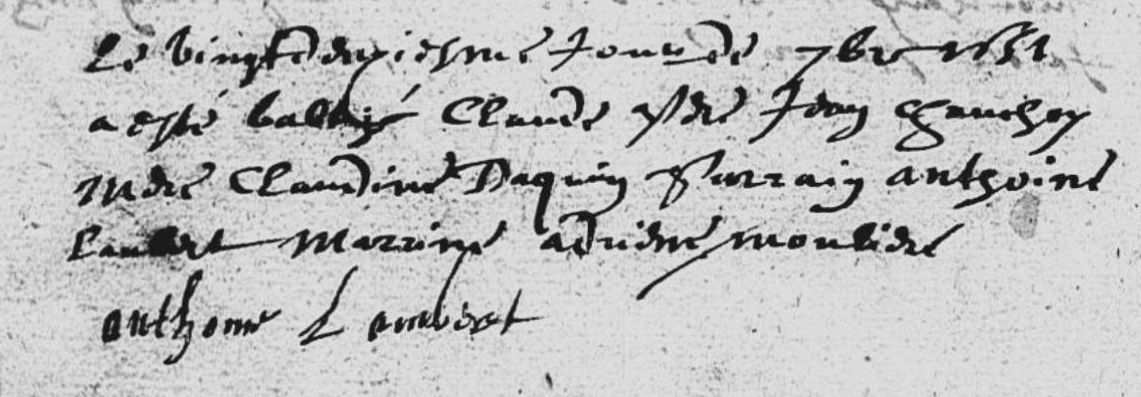 Le vingt deuxiesme Jour de 7bre 1651
a esté baptisé Claude pere Jean
mere Claudine Daquin Parrain anthoine
Laubert Marrine adriene
anthoine Lambert